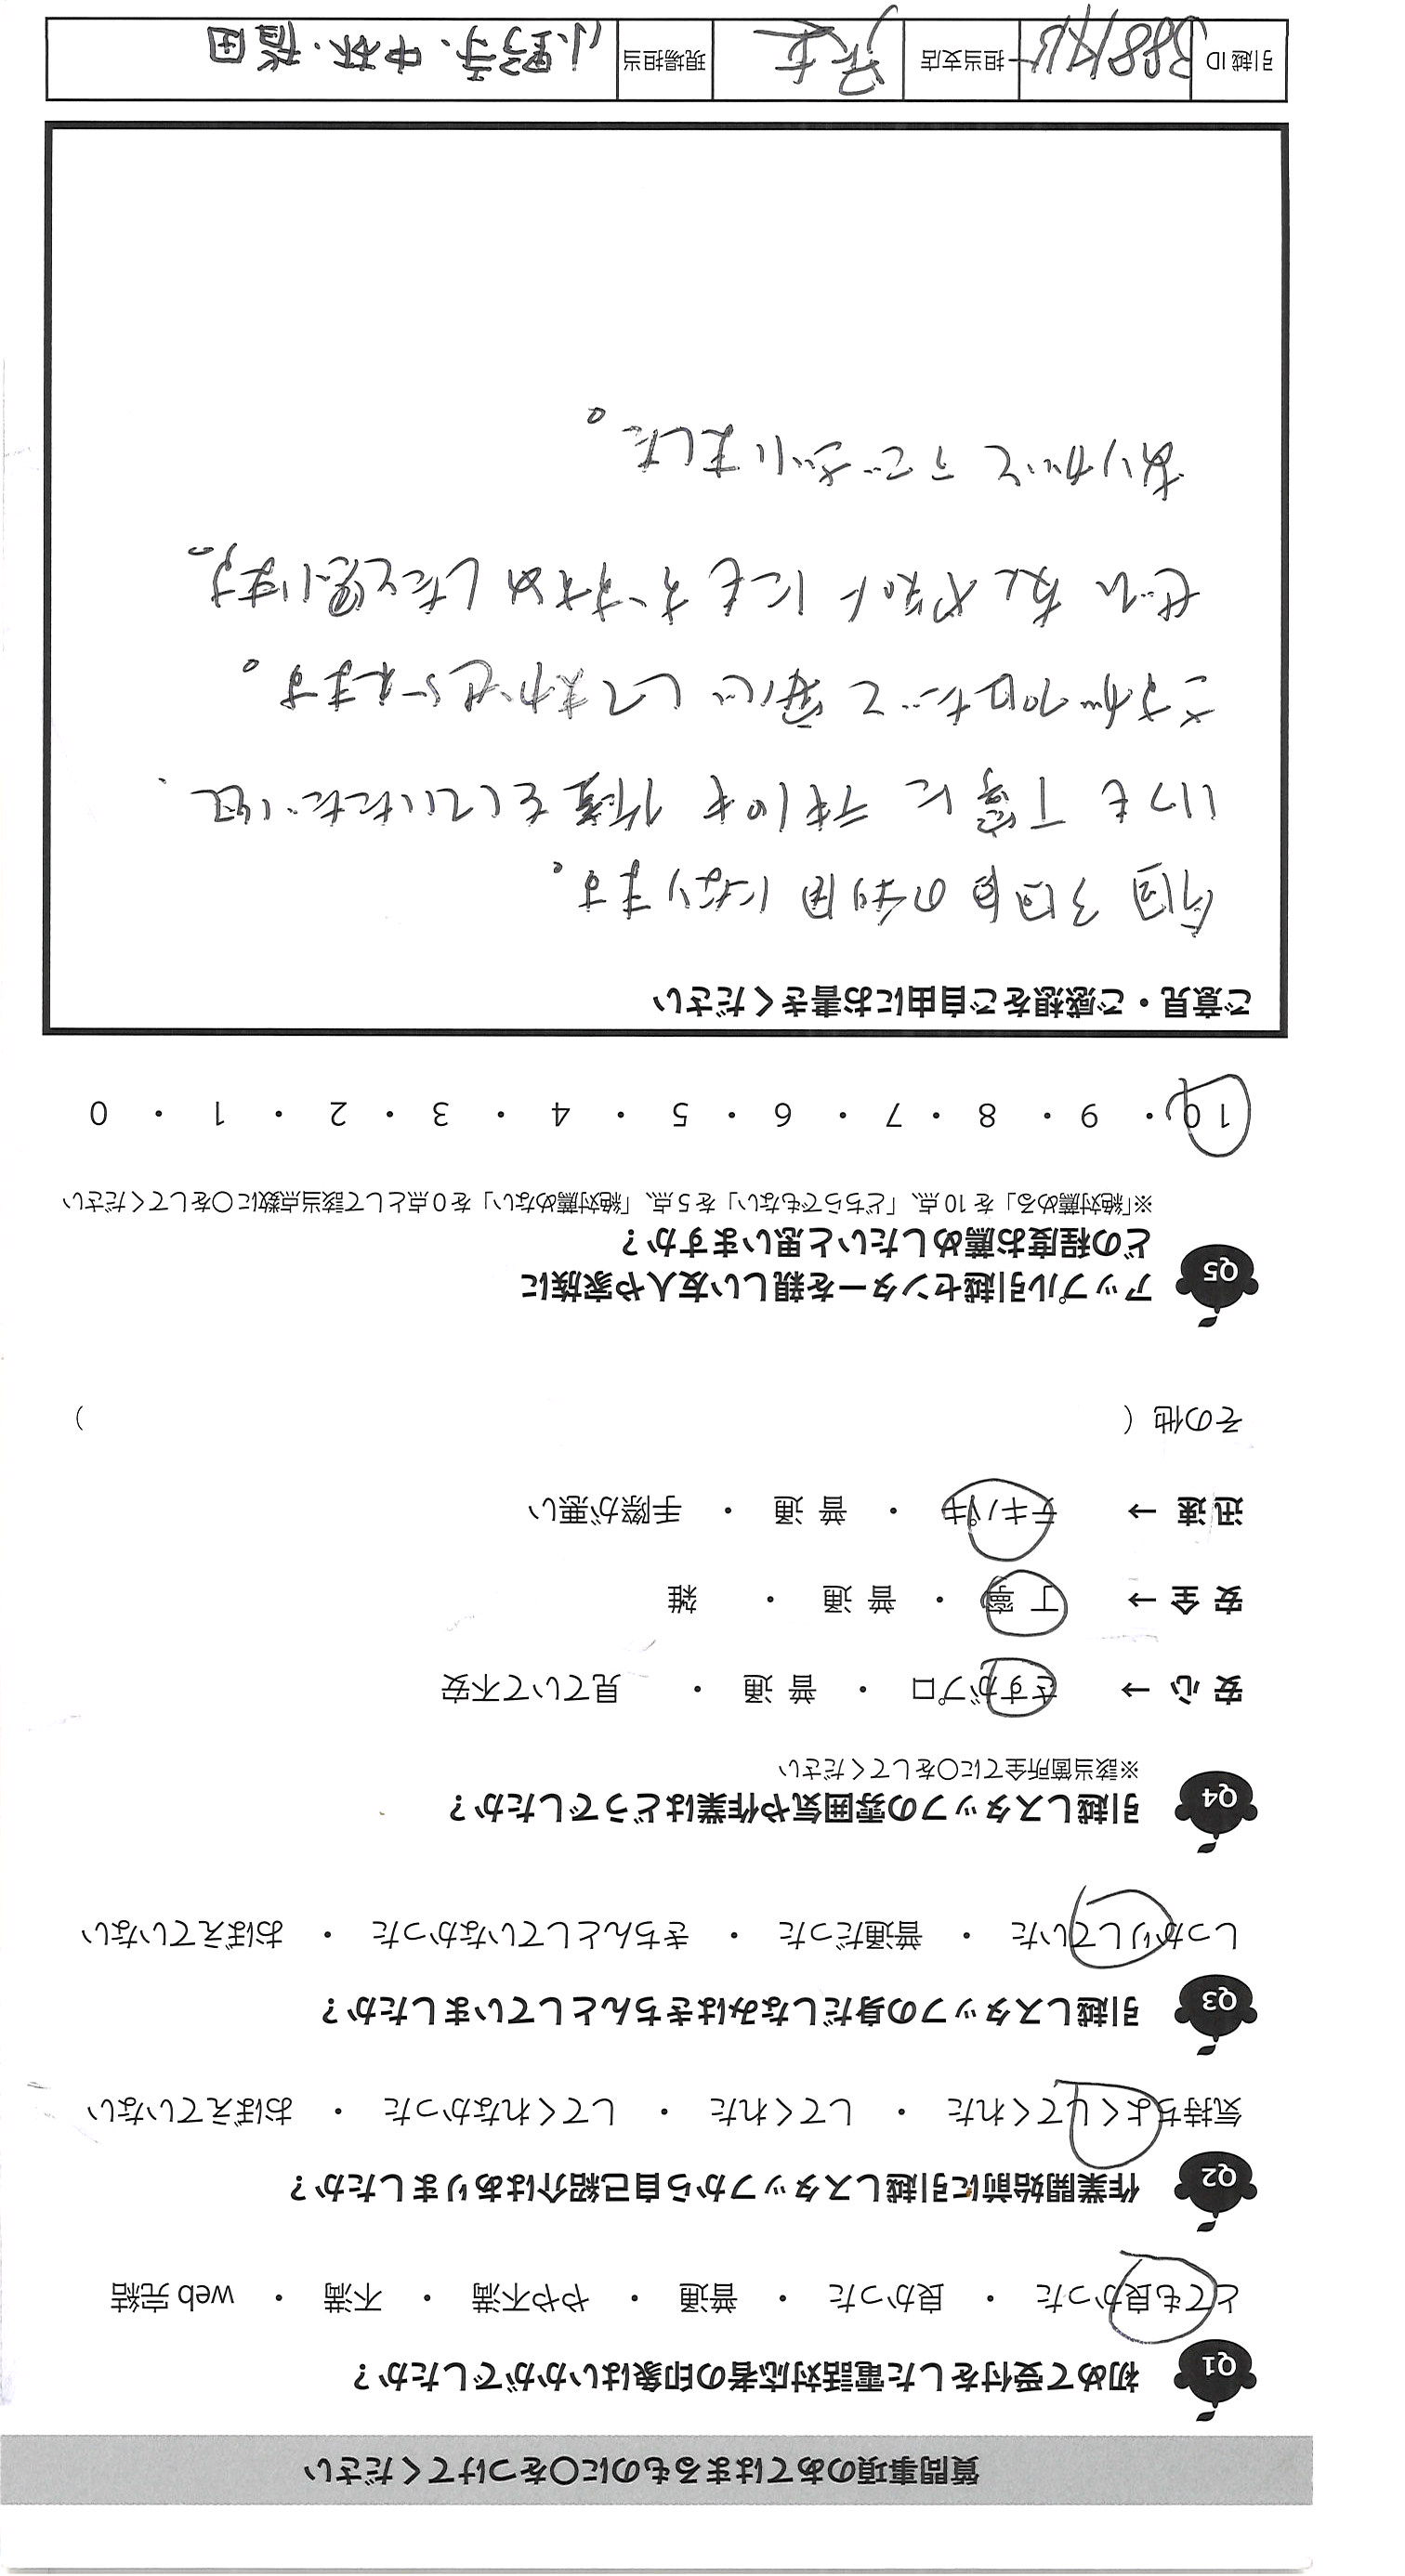 質問事項のあてはまるものに○をつけてください
Q1 初めて受付をした電話対応者の印象はいかがでしたか？
とても良かった ・ 良かった ・ 普通 ・ やや不満 ・ 不満 ・ web完結
Q2 作業開始前に引越しスタッフから自己紹介はありましたか？
気持ちよくしてくれた ・ してくれた ・ してくれなかった ・ おぼえていない
Q3 引越しスタッフの身だしなみはきちんとしていましたか？
しっかりしていた ・ 普通だった ・ きちんとしていなかった ・ おぼえていない
Q4 引越しスタッフの雰囲気や作業はどうでしたか？
※該当箇所全てに○をしてください
安心→ さすがプロ ・ 普通 ・ 見ていて不安
安全→ 丁寧 ・ 普通 ・ 雑
迅速→ テキパキ ・ 普通 ・ 手際が悪い
その他（ ）
Q5 アップル引越センターを親しい友人や家族に
どの程度お薦めしたいと思いますか？
※「絶対薦める」を10点、「どちらでもない」を5点、「絶対薦めない」を0点として該当点数に○をしてください
10 ・ 9 ・ 8 ・ 7 ・ 6 ・ 5 ・ 4 ・ 3 ・ 2 ・ 1 ・ 0
ご意見・ご感想をご自由にお書きください
今回3回目の利用になります。
いつも丁寧に 作業をしていただい
さすがプロだと安心してまかせられます。
ぜひ 友人や知人にもおすすめしたと思います。
ありがとうございました。
引越ID 担当支店 現場担当 小野寺・中林・